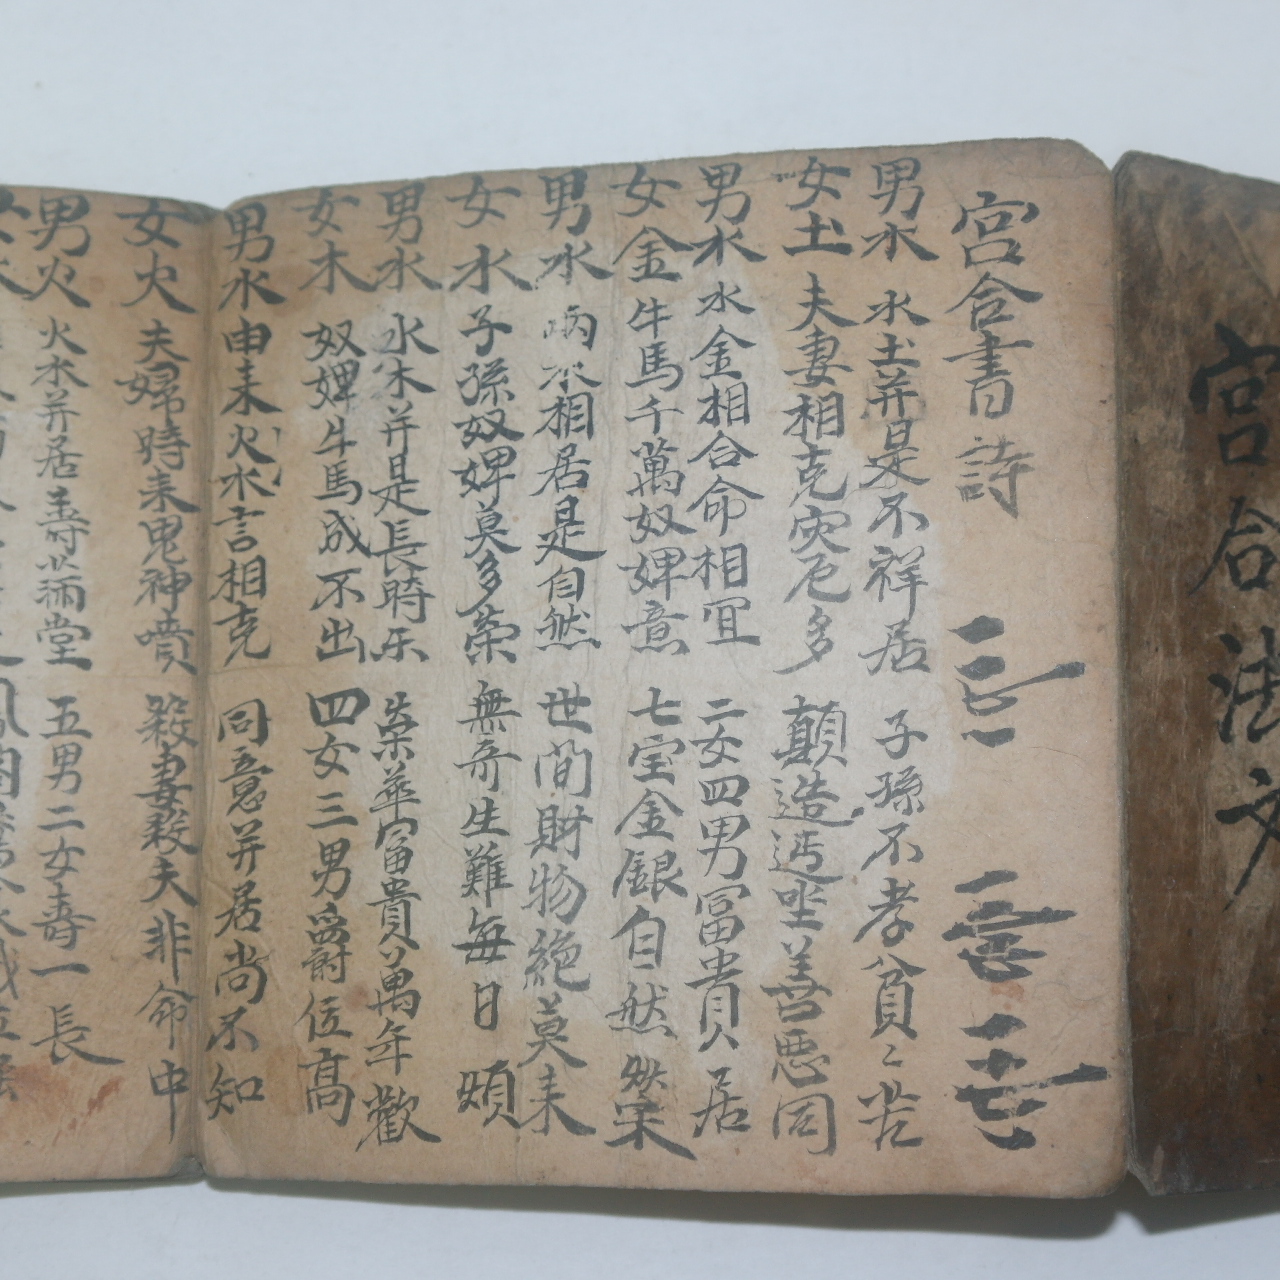 宮合法文
宮合書詩
男水 水土并是不祥居 子孫不孝貧〻苦
女土 夫妻相克灾厄多 顛造 坐善悪同
男水 水金相合命相宜 二女四男冨貴居
女金 牛馬千萬奴婢意 七宝金銀自然榮
男水 両水相居是自然 世間財物絶莫来
女水 子孫奴婢莫多荣 無奇生難每日煩
男水 水木并是長時乐 榮華富貴萬年歡
女木 奴婢牛馬成不出 四女三男爵位高
男水 申未火水言相克 同意并居尚不知
女火 夫婦時来鬼神嗔 殺妻殺夫非命中
男火 火水并居壽滿堂 五男二女壽一長